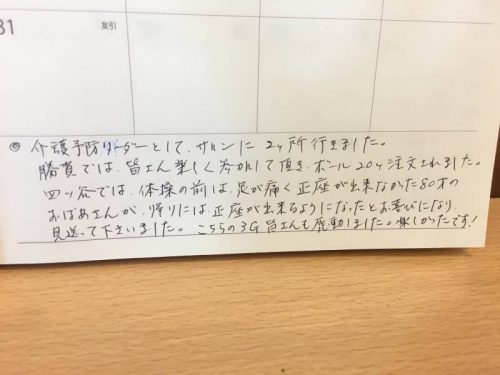 31 友引
◎ 介護予防リーダーとして、サロンに2ヶ所行きました。
勝賀では、皆さん楽しく参加して頂き、ボール20ヶ注文されました。
四ッ谷では、体操の前は、足が痛く正座が出来なかった80才の
おばあさんが、帰りには、正座が出来るようになったとお喜びになり、
見送って下さいました。こちらの3G皆さんも感動しました。楽しかったです!